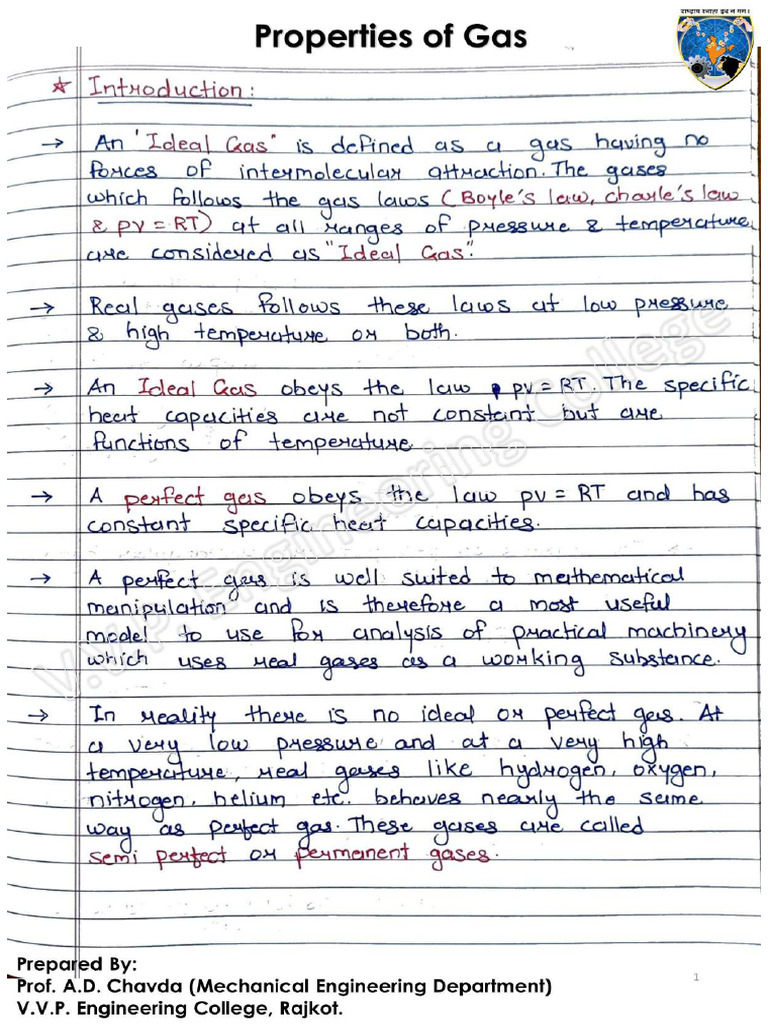 Properties of Gas
राष्ट्राय स्वाहा इदं न मम।
☆ Introduction:
→ An "Ideal Gas" is defined as a gas having no
forces of intermolecular attraction. The gases
which follows the gas laws (Boyle's law, charle's law
& pv = RT) at all ranges of pressure & temperature
are considered as "Ideal Gas".
→ Real gases follows these laws at low pressure
& high temperature or both.
→ An Ideal Gas obeys the law pv = RT. The specific
heat capacities are not constant but are
functions of temperature
→ A perfect gas obeys the law pv = RT and has
constant specific heat capacities.
→ A perfect gas is well suited to mathematical
manipulation and is therefore a most useful
model to use for analysis of practical machinery
which uses real gases as a working substance.
→ In reality there is no ideal or perfect gas. At
a very low pressure and at a very high
temperature, real gases like hydrogen, oxygen,
nitrogen, helium etc. behaves nearly the same
way as perfect gas. These gases are called
semi perfect or permanent gases.
V.V.P. Engineering College
Prepared By:
Prof. A.D. Chavda (Mechanical Engineering Department)
V.V.P. Engineering College, Rajkot.
1